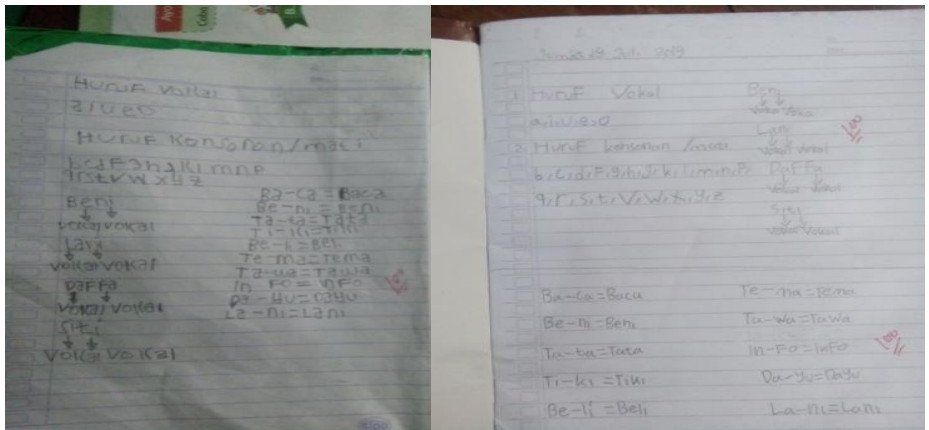 Huruf Vokal
a i u e o
Huruf Konsonan/mati
b c d F g h j k l m n p
q r s t v w x y z
Beni
Vokal Vokal
Lani
Vokal Vokal
Daffa
Vokal Vokal
Siti
Vokal Vokal
Ba-ca = Baca
Be-ni = Beni
Ta-ta = Tata
Ti-ki = Tiki
Be-li = Beli
Te-ma = Tema
Ta-wa = Tawa
In Fo = InFo
Da-yu = Dayu
La-ni = Lani
100
2019
1. Huruf Vokal
a, i, u, e, o
2. Huruf konsonan /mati
b, c, d, F, g, h, j, k, l, m, n, P,
q, r, s, t, V, W, x, y, z
Beni
Vokal Vokal
Lani
Vokal Vokal
DaFFa
Vokal Vokal
Siti
Vokal Vokal
100
Ba-ca = Baca
Be-ni = Beni
Ta-ta = Tata
Ti-ki = Tiki
Be-li = Beli
Te-ma = Tema
Ta-wa = Tawa
In-Fo = InFo
Da-yu = Dayu
La-ni = Lani
100